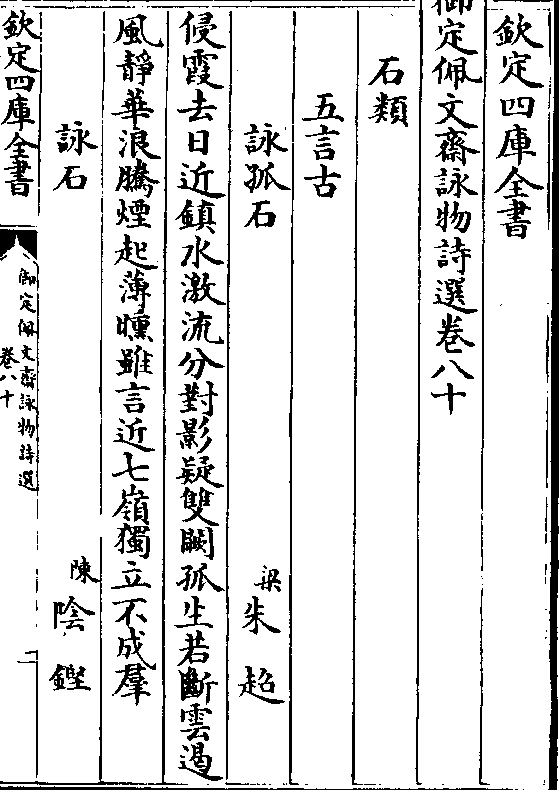 欽定四庫全書
御定佩文齋詠物詩選卷八十
石類
五言古
詠孤石　梁朱超
侵霞去日近鎮水激流分對影疑雙闕孤生若斷雲遏
風靜華浪騰煙起薄曛雖言近七嶺獨立不成羣
詠石　陳陰鏗
欽定四庫全書
御定佩文齋詠物詩選
卷八十